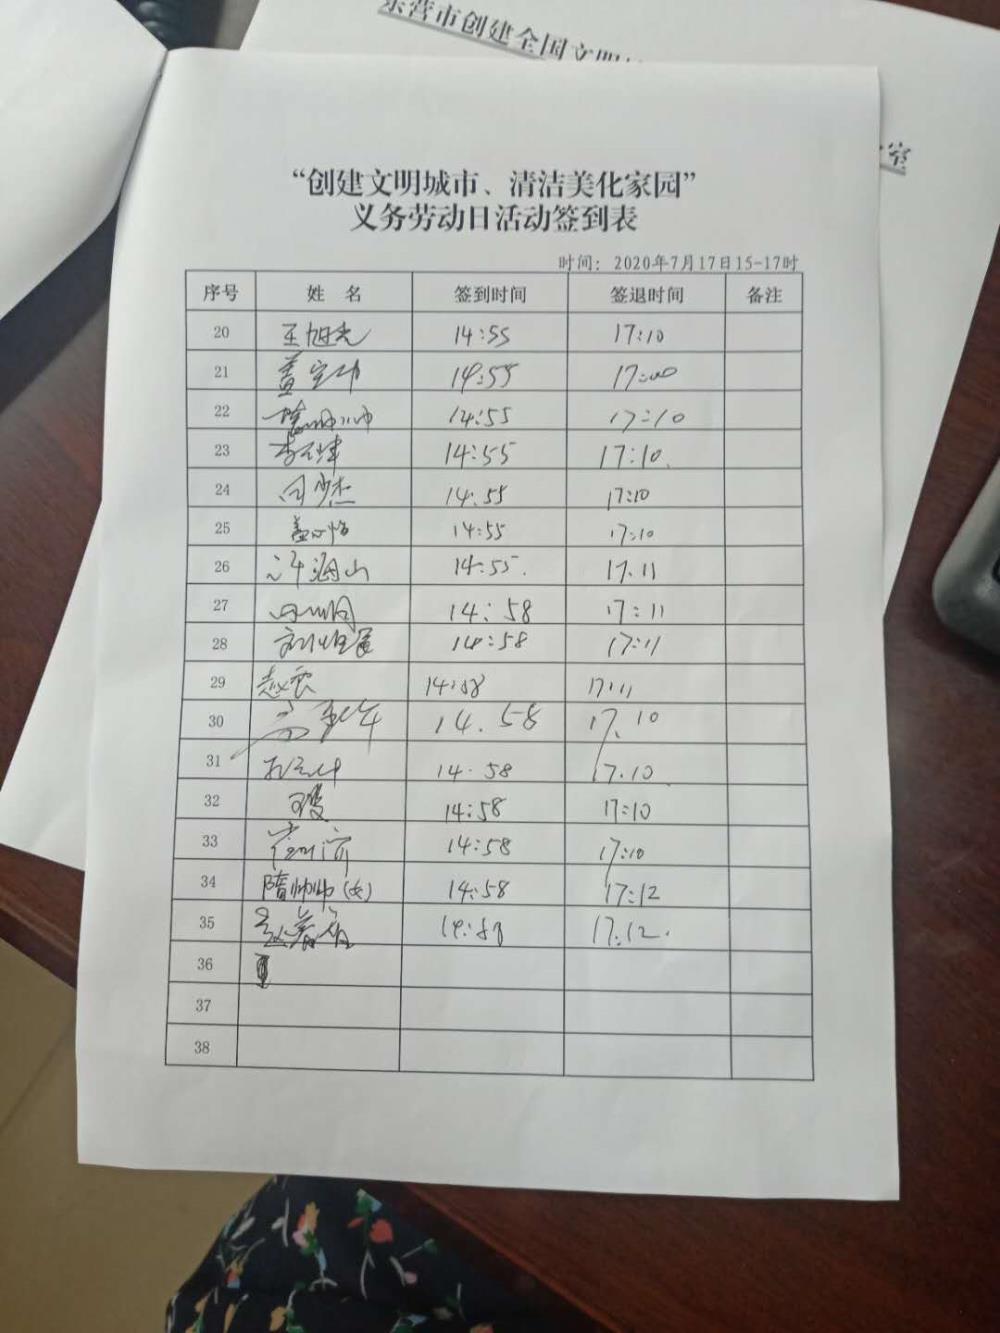 东营市创建全国文明
室
“创建文明城市、清洁美化家园”
义务劳动日活动签到表
时间：2020年7月17日15-17时
序号 姓 名 签到时间 签退时间 备注
20 王旭光 14:55 17:10
21 14:55 17:00
22 14:55 17:10
23 14:55 17:10.
24 14:55 17:10
25 盖心怡 14:55 17:10
26 许海山 14:55. 17.11
27 14:58 17:11
28 14:58 17:11
29 赵震 14:58 17:11
30 14.58 17.10
31 14.58 17.10
32 14:58 17:10
33 14:58 17:10
34 隋帅帅(女) 14:58 17:12
35 14:58 17:12.
36
37
38